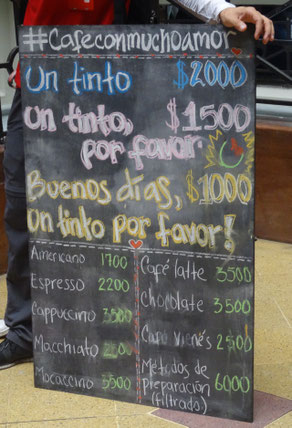 #Cafeconmuchoamor
Un tinto $2000
Un tinto, $1500
por favor
Buenos días, $1000
un tinto por favor!
Americano 1700
Espresso 2200
Cappuccino 3500
Macchiato
Mocaccino 5500
Café latte 3500
Chocolate 3500
Capu vienés 2500
Métodos de
preparación 6000
(filtrado)